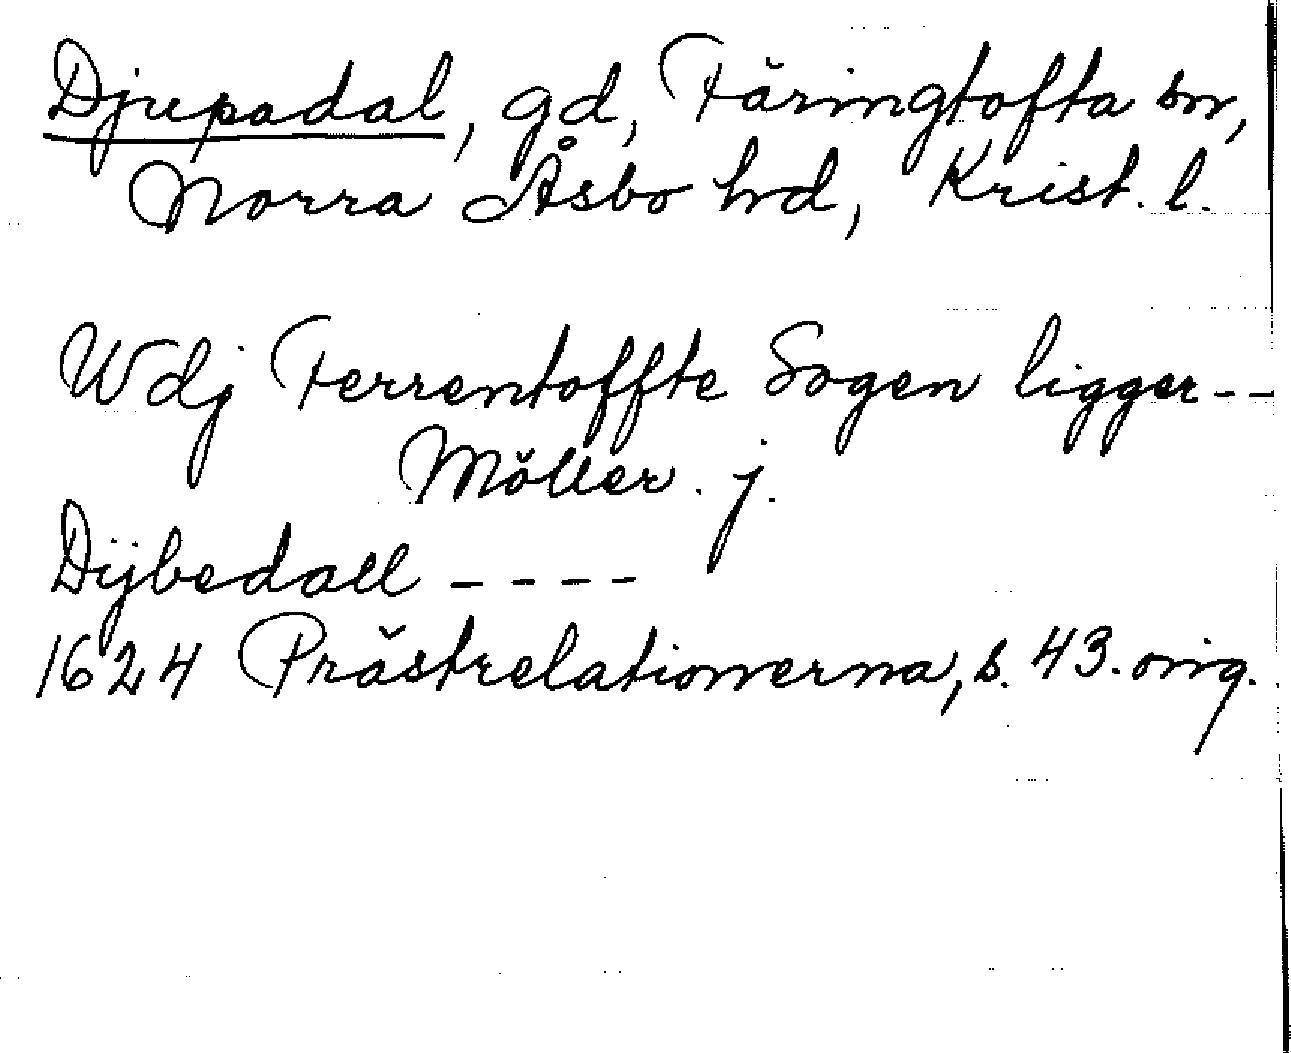 Djupadal, gd, Färingtofta sn,
Norra Åsbo hd, Krist. l.
Wdj Ferrentoffte Sogen ligger--
Möller. j.
Dÿbedall ----
1624 Prästrelationerna, s. 43. orig.